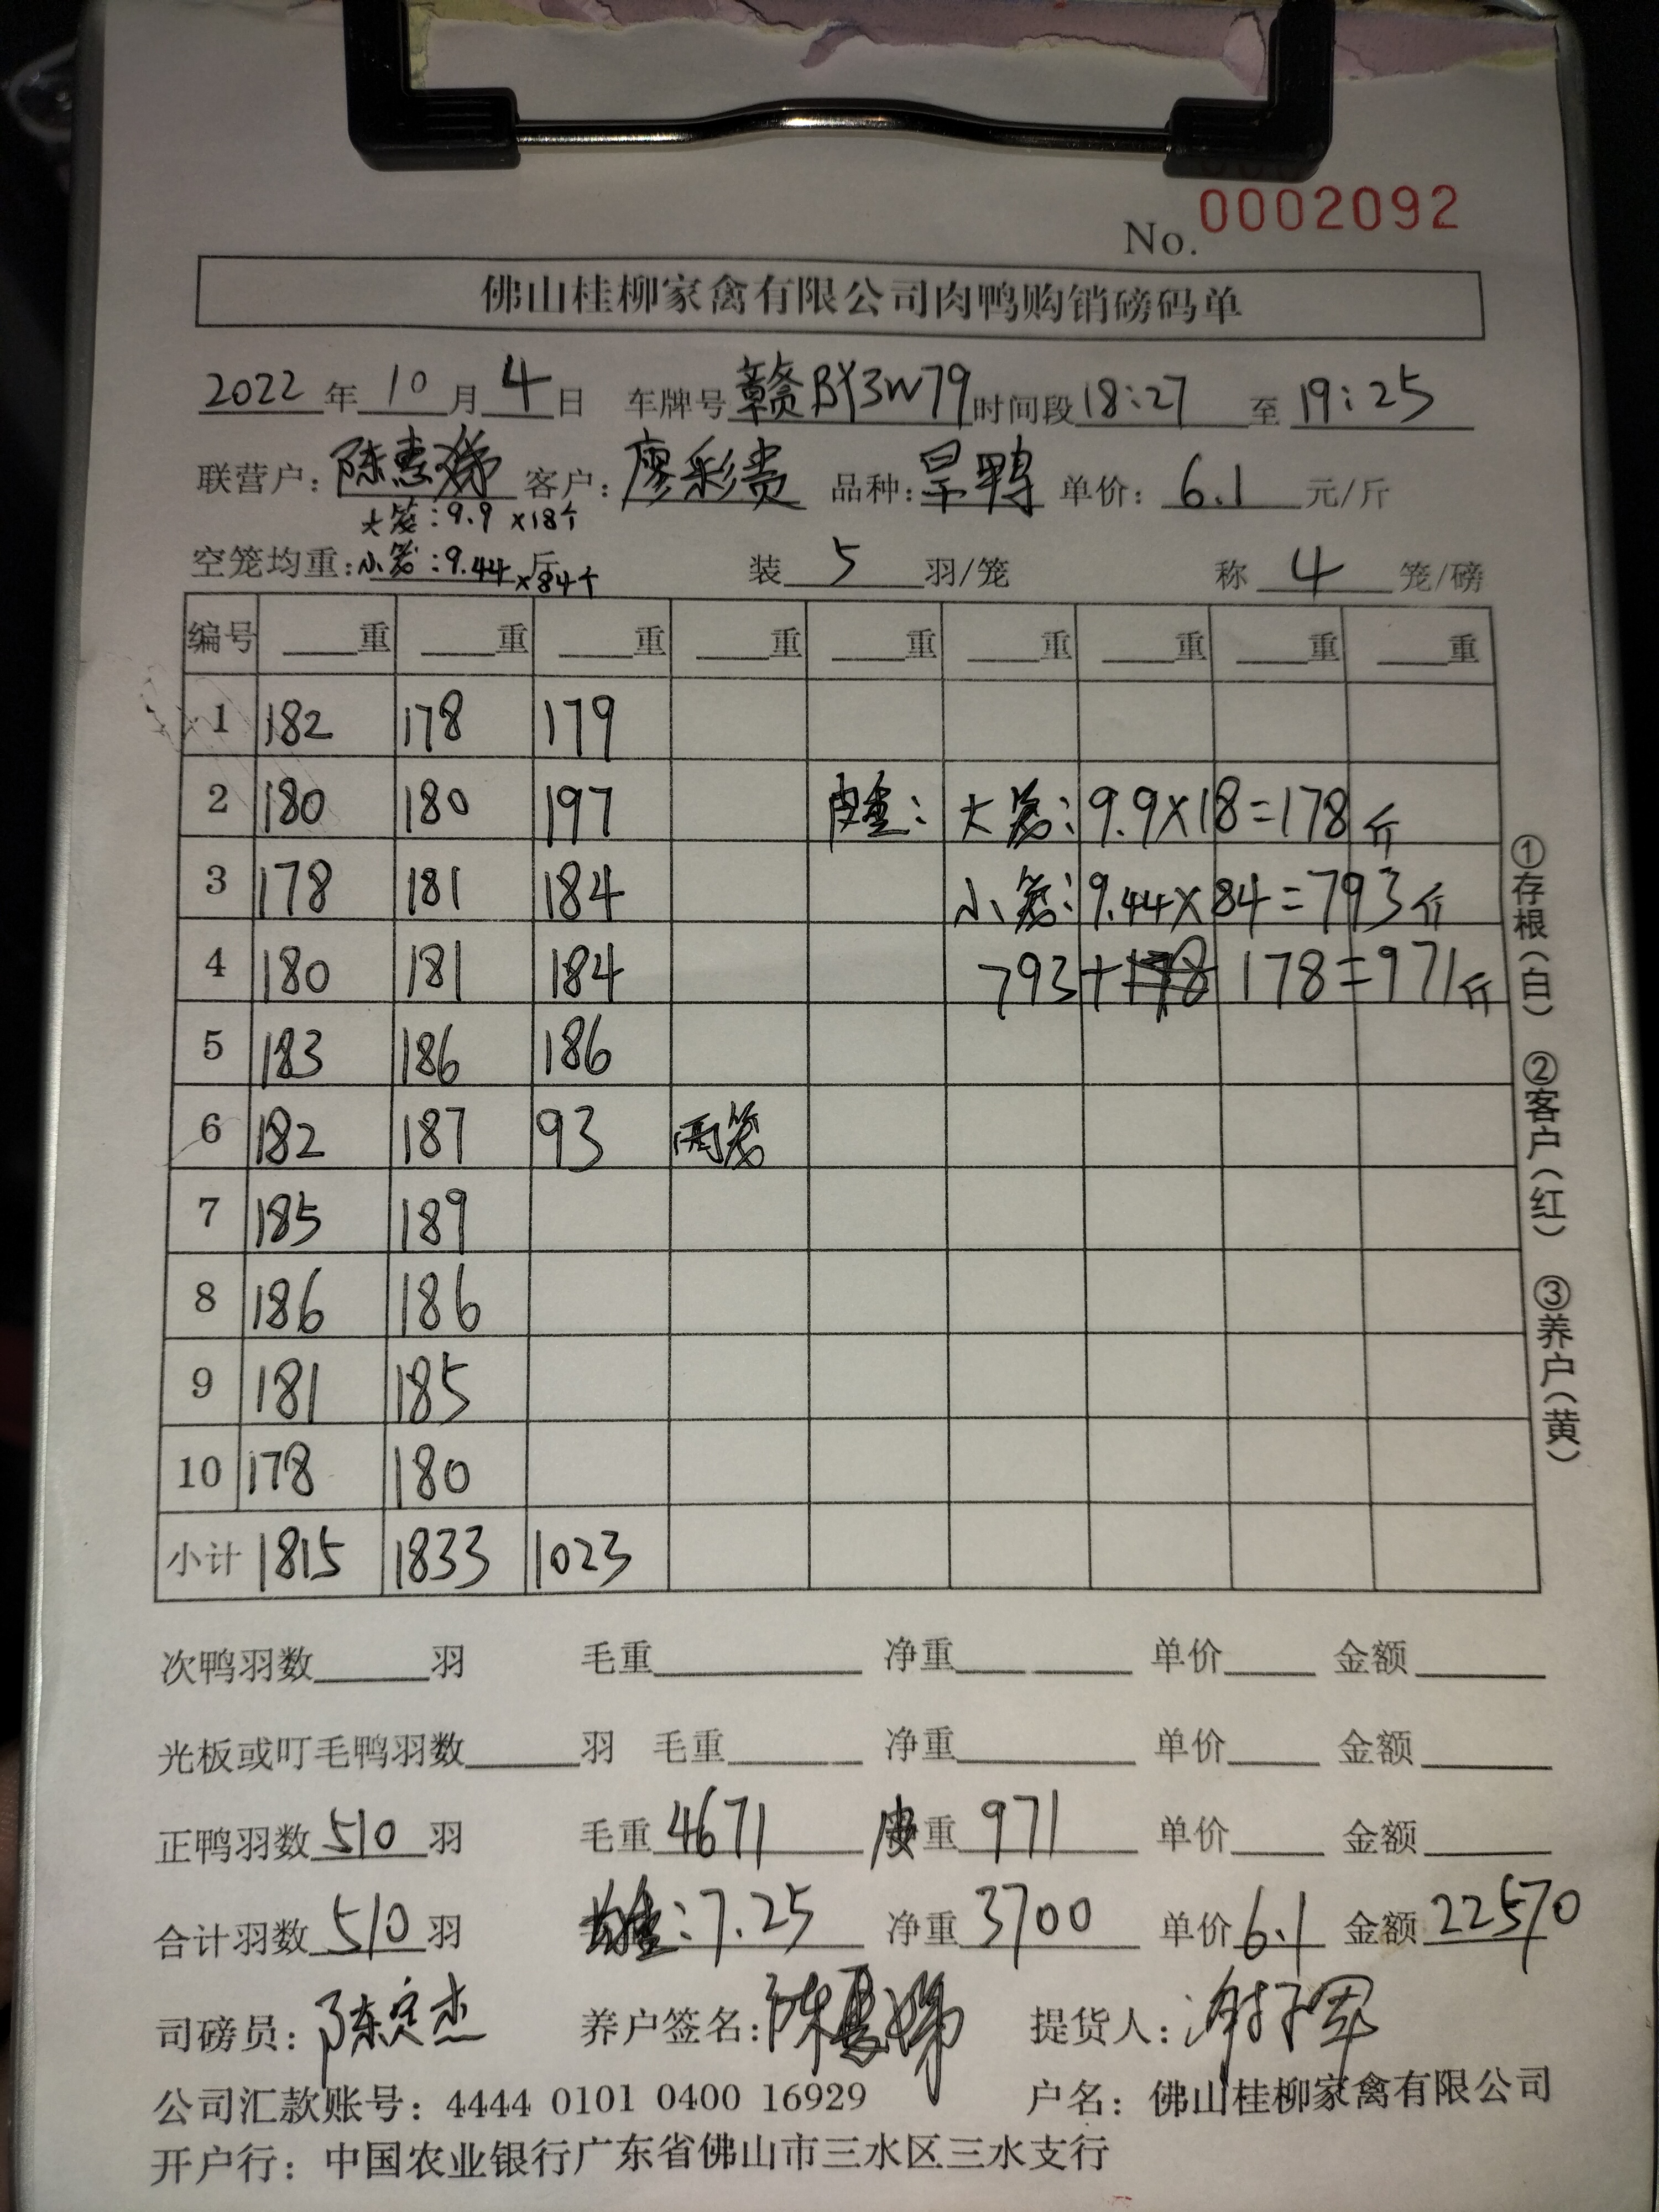 No. 0002092
佛山桂柳家禽有限公司肉鸭购销磅码单
2022年10月4日 车牌号赣BY3W79时间段18:27 至 19:25
联营户:陈惠娣 客户:廖彩贵 品种:旱鸭 单价:6.1元/斤
大笼:9.9×18个
空笼均重:小笼:9.44斤×84个 装5羽/笼 称4笼/磅
编号 重 重 重 重 重 重 重 重 重
1 182 178 179
2 180 180 197 皮重: 大笼:9.9×18=178斤
3 178 181 184 小笼:9.44×84=793斤
4 180 181 184 793+178=971斤
5 183 186 186
6 182 187 93 两笼
7 185 189
8 186 186
9 181 185
10 178 180
小计 1815 1833 1023
①存根(白) ②客户(红) ③养户(黄)
次鸭羽数 羽 毛重 净重 单价 金额
光板或叮毛鸭羽数 羽 毛重 净重 单价 金额
正鸭羽数510羽 毛重4671 皮重971 单价 金额
合计羽数510羽 均重:7.25 净重3700 单价6.1 金额22570
司磅员:陈定杰 养户签名:陈惠娣 提货人:
公司汇款账号:4444 0101 0400 16929 户名:佛山桂柳家禽有限公司
开户行:中国农业银行广东省佛山市三水区三水支行